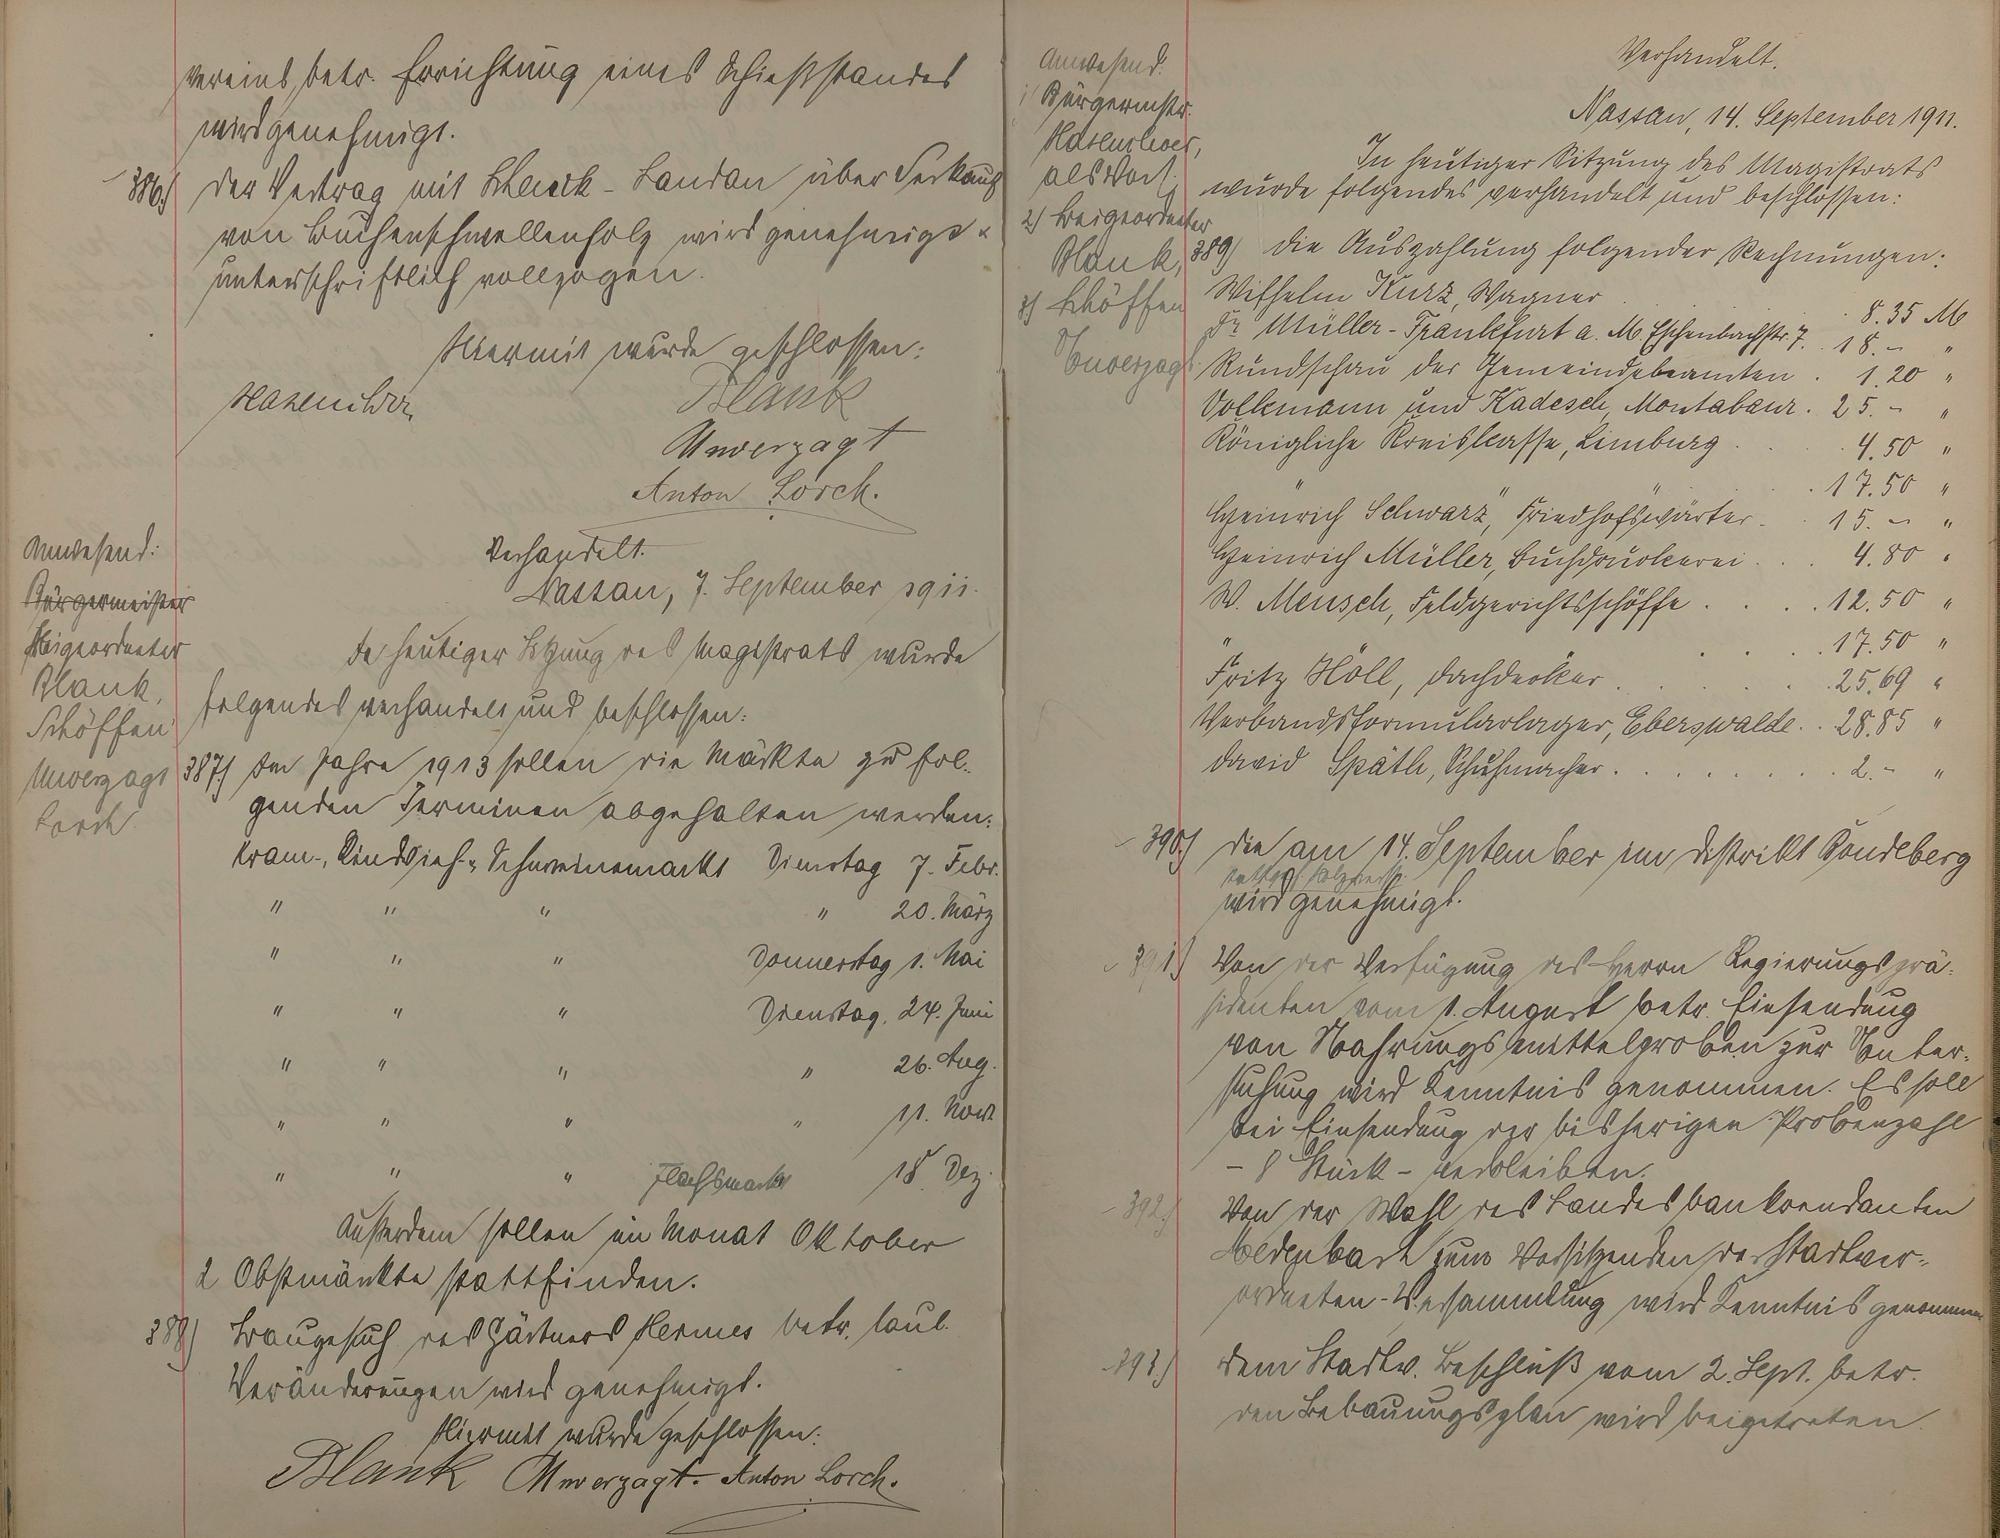 vereins, betr. Errichtung eines Schießstandes
wird genehmigt.
386.) Der Vertrag mit Schenck-Landau über Verkauf
von Buchenschwellenholz wird genehmigt u.
unterschriftlich vollzogen.
Hiermit wurde geschlossen:
Hasenclever
Blank
Unverzagt
Anton Lorch.
Anwesend:
Bürgermeister
Beigeordneter
Blank,
Schöffen
Unverzagt
Lorch
Verhandelt.
Nassau, 7. September 1911.
In heutiger Sitzung des Magistrats wurde
folgendes verhandelt und beschlossen:
387) Im Jahre 1913 sollen die Märkte zu fol-
genden Terminen abgehalten werden:
Kram-, Rindvieh- u. Schweinemarkt Dienstag 7. Febr.
" " " " 20. März
" " " Donnerstag 1. Mai
" " " Dienstag, 24. Juni
" " " " 26. Aug.
" " " " 11. Nov.
" " " Flachsmarkt 18. Dez.
Außerdem sollen im Monat Oktober
2 Obstmärkte stattfinden.
388) Baugesuch des Gärtners Hermes betr. baul.
Veränderungen wird genehmigt.
Hiermit wurde geschlossen:
Blank Unverzagt. Anton Lorch.
Anwesend:
1) Bürgermstr.
Hasenclever,
als Vors.
2) Beigeordneter
Blank,
3) Schöffen
Unverzagt
Verhandelt.
Nassau, 14. September 1911.
In heutiger Sitzung des Magistrats
wurde folgendes verhandelt und beschlossen:
389) Die Auszahlung folgender Rechnungen:
Wilhelm Kurz, Wagner . 8.35 M
Dr. Müller-Frankfurt a. M. Eschenbachstr. 7. . 18.- "
Rundschau der Gemeindebeamten . 1.20 "
Volkmann und Kadesch, Montabaur . 25.- "
Königliche Kreiskasse, Limburg . . . 4.50 "
" " . . 17.50 "
Heinrich Schwarz, Friedhofswärter . . 15.- "
Heinrich Müller, Buchdruckerei . . . 4.80 "
W. Mensch, Feldgerichtsschöffe . . . . 12.50 "
" . . . . 17.50 "
Fritz Höll, Dachdecker . . . . . . 25.69 "
Verbandsformularlager, Eberswalde . . 28.85 "
David Späth, Schuhmacher . . . . . . . . 2.- "
390.) Die am 14. September im Distrikt Röndeberg
wird genehmigt.
391.) Von der Verfügung des Herrn Regierungsprä-
sidenten vom 1. August betr. Einsendung
von Nahrungsmittelproben zur Unter-
suchung wird Kenntnis genommen. Es soll
bei Einsendung der bisherigen Probenzahl
- 8 Stück - verbleiben.
392.) Von der Wahl des Landesbankrendanten
zum Vorsitzenden der Stadtver-
ordneten-Versammlung wird Kenntnis genommen
393.) Dem Stadtv. Beschluß vom 2. Sept. betr.
den Bebauungsplan wird beigetreten.